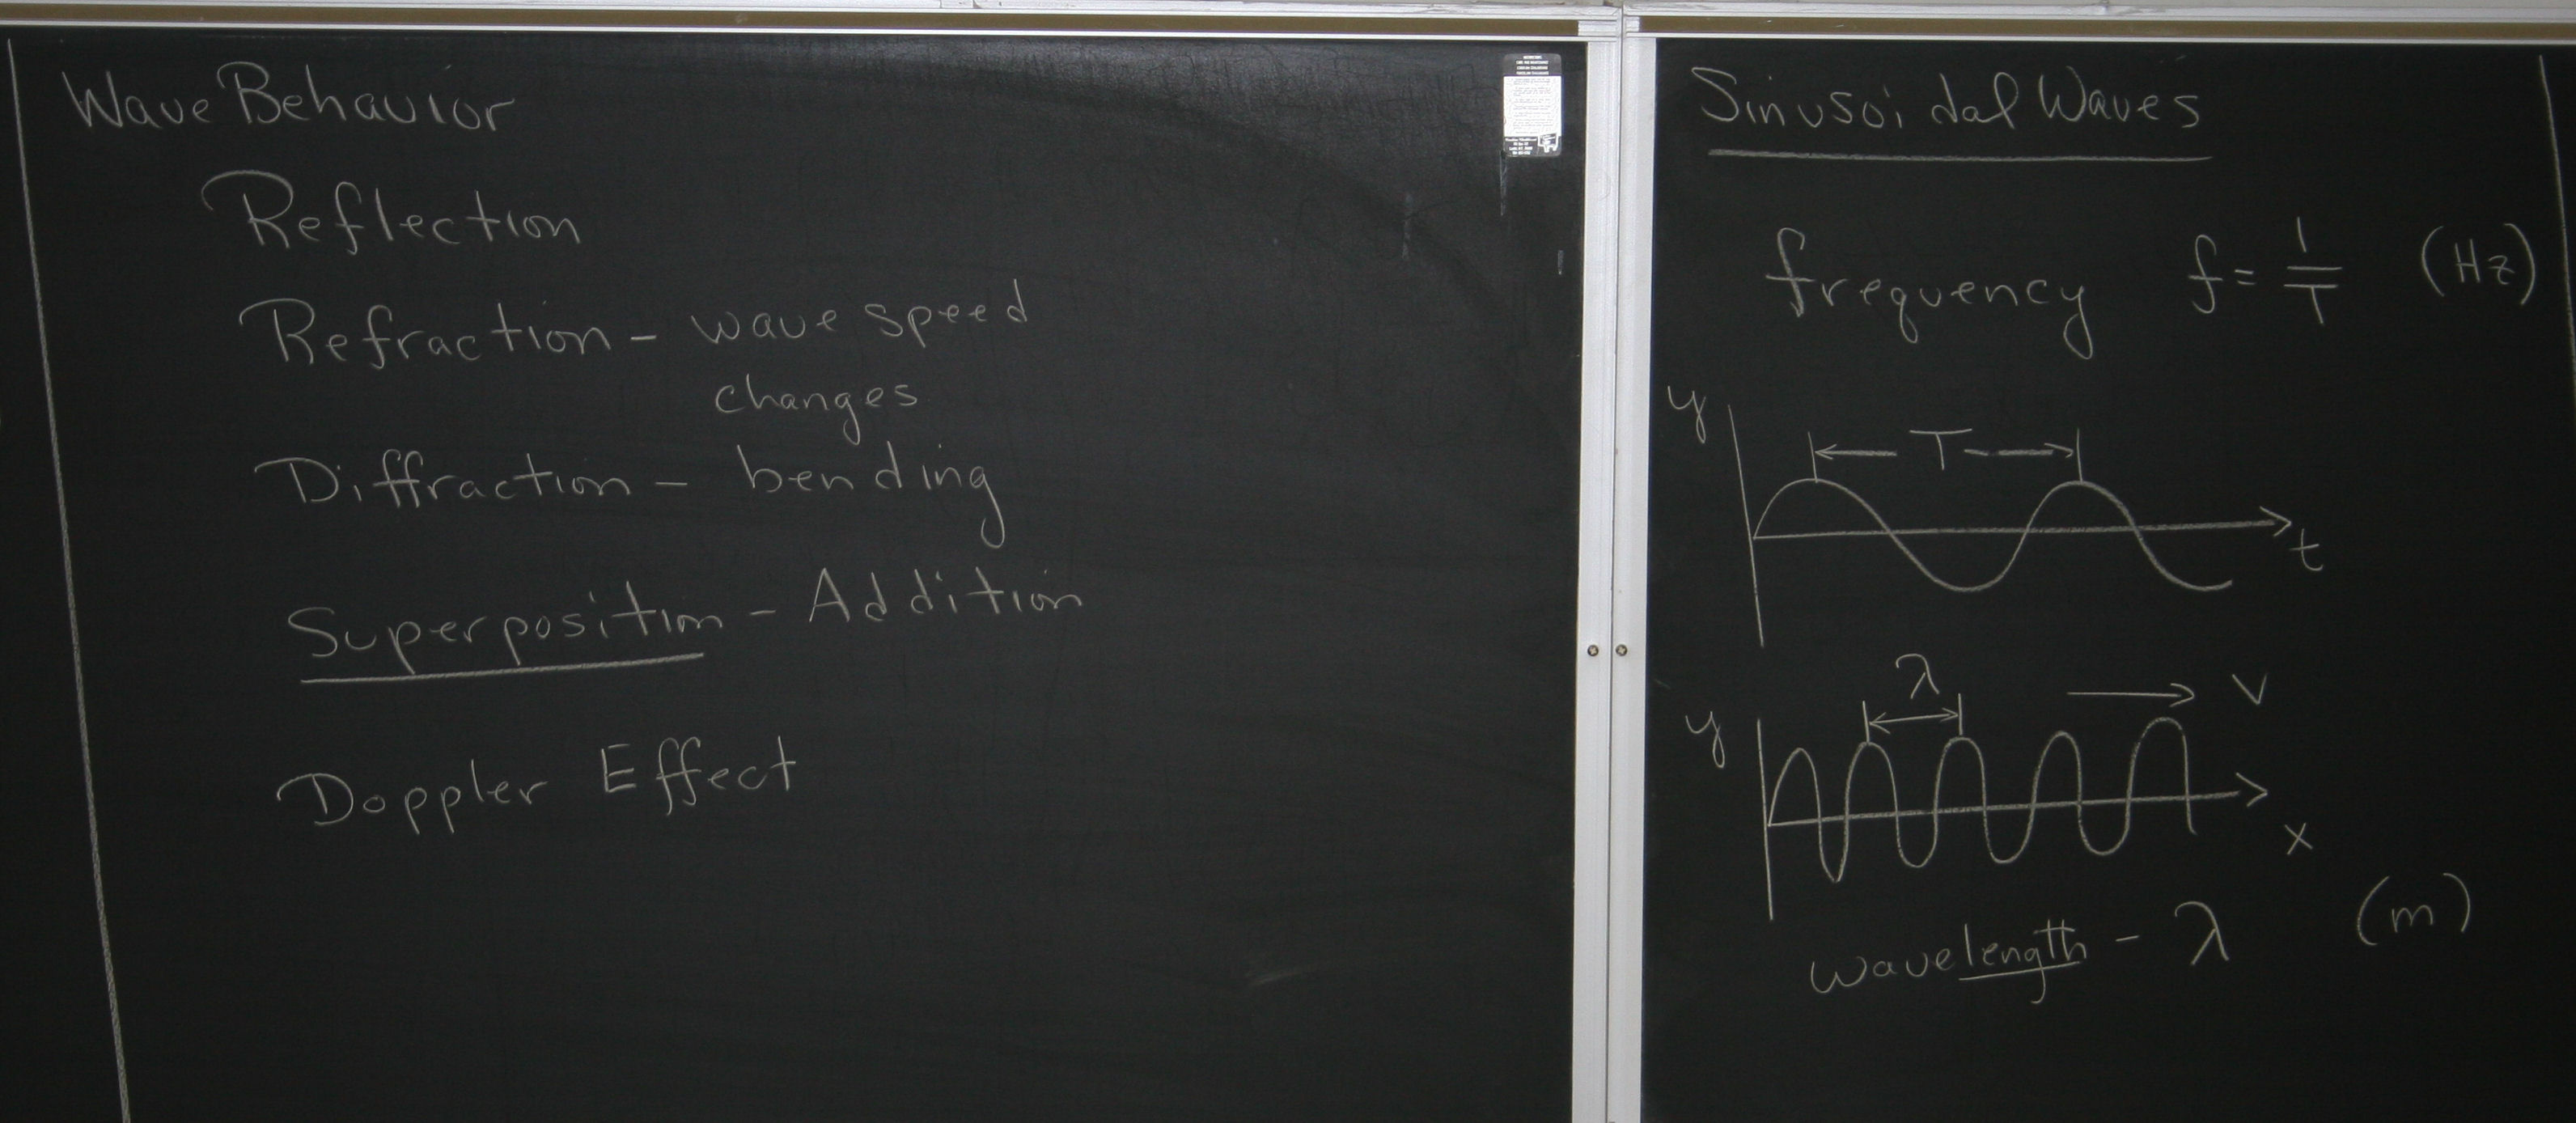 Wave Behavior
Reflection
Refraction - wave speed
changes
Diffraction - bending
Superposition - Addition
Doppler Effect
Sinusoidal Waves
frequency f = 1/T (Hz)
y
T
t
λ
v
y
x
wavelength - λ (m)